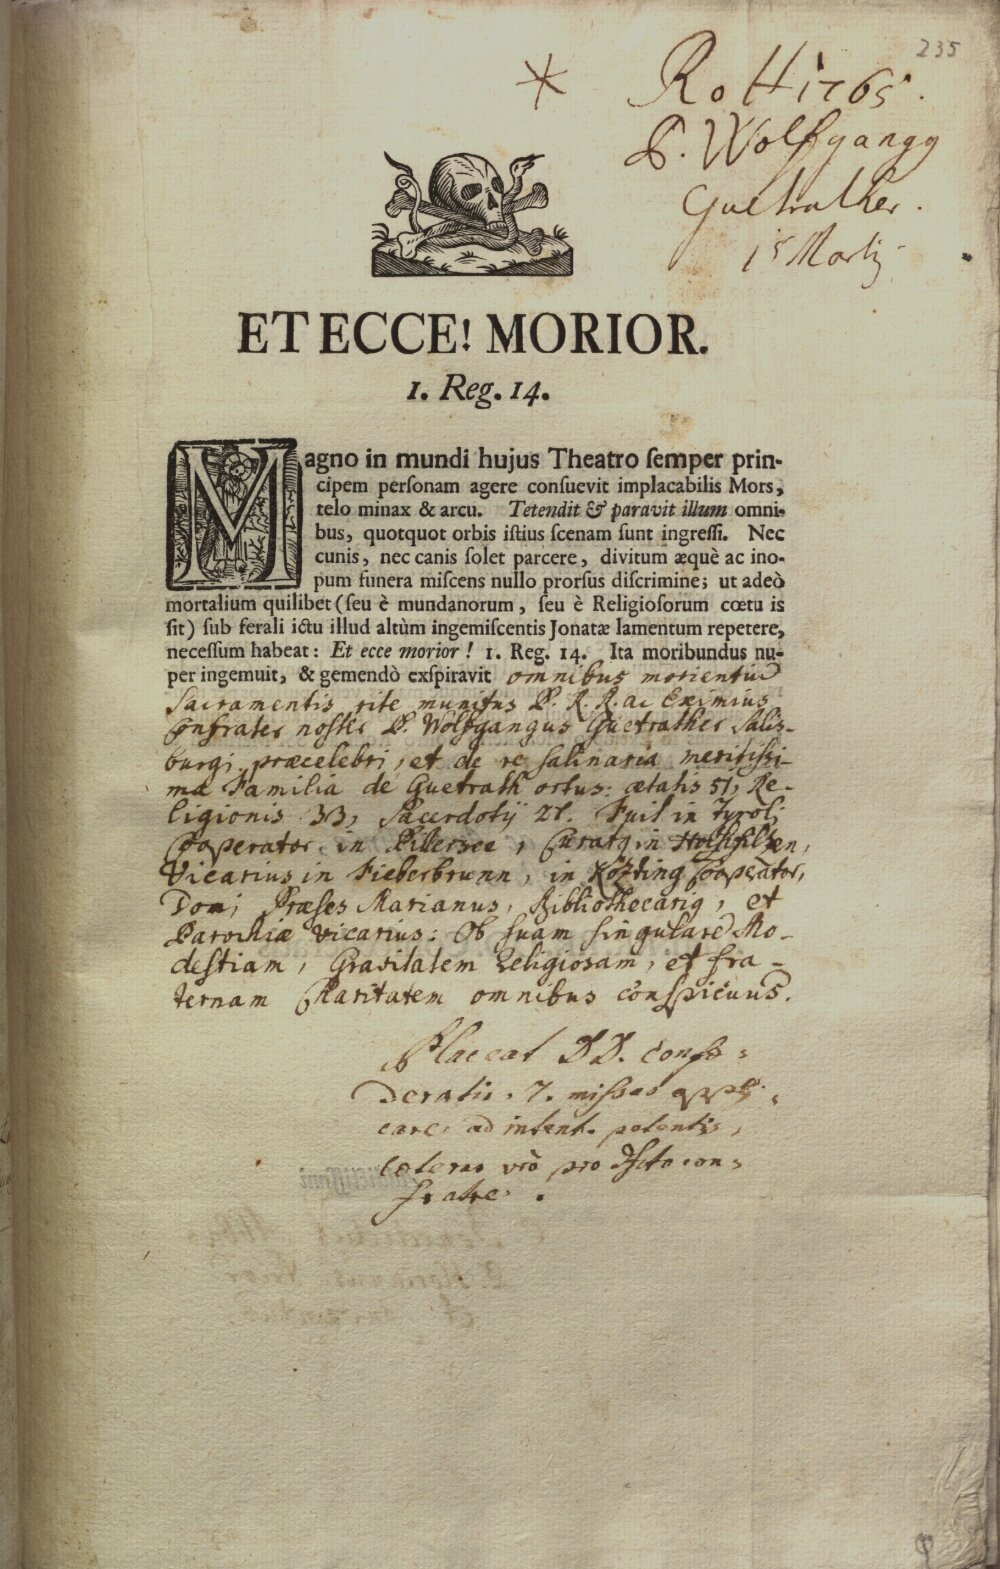 235
Rott 1765.
P. Wolfgangg
Guetrather.
15 Martij
ET ECCE! MORIOR.
1. Reg. 14.
Magno in mundi hujus Theatro semper prin-
cipem personam agere consuevit implacabilis Mors,
telo minax & arcu. Tetendit & paravit illum omni-
bus, quotquot orbis istius scenam sunt ingressi. Nec
cunis, nec canis solet parcere, divitum æquè ac ino-
pum funera miscens nullo prorsus discrimine; ut adeò
mortalium quilibet (seu è mundanorum, seu è Religiosorum cœtu is
sit) sub ferali ictu illud altùm ingemiscentis Jonatæ lamentum repetere,
necessum habeat: Et ecce morior! 1. Reg. 14. Ita moribundus nu-
per ingemuit, & gemendò exspiravit omnibus morientiũ
Sacramentis rite munitus P. R. R. ac Eximius
Confrater noster P. Wolfgangus Guetrather Salis-
burgi præcelebri, et de re salinaria meritissi-
ma Familia de Guetrath ortus: ætatis 57, Re-
ligionis 33, Sacerdotij 27. Fuit in Tyroli
Cooperator in Pillersee, Curatq in Hochfilzen,
Vicarius in Fieberbrunn, in Közting Cooperator,
Domi Præses Marianus, Bibliothecariq, et
Parochiæ Vicarius: Ob suam singularē Mo-
destiam, Gravitatem Religiosam, et fra-
ternam Charitatem omnibus conspicuus.
Placeat DD. Confœ=
deratis 7. missas
care ad intent. petentis,
cæteras vrò pro dfcto con=
fratre.